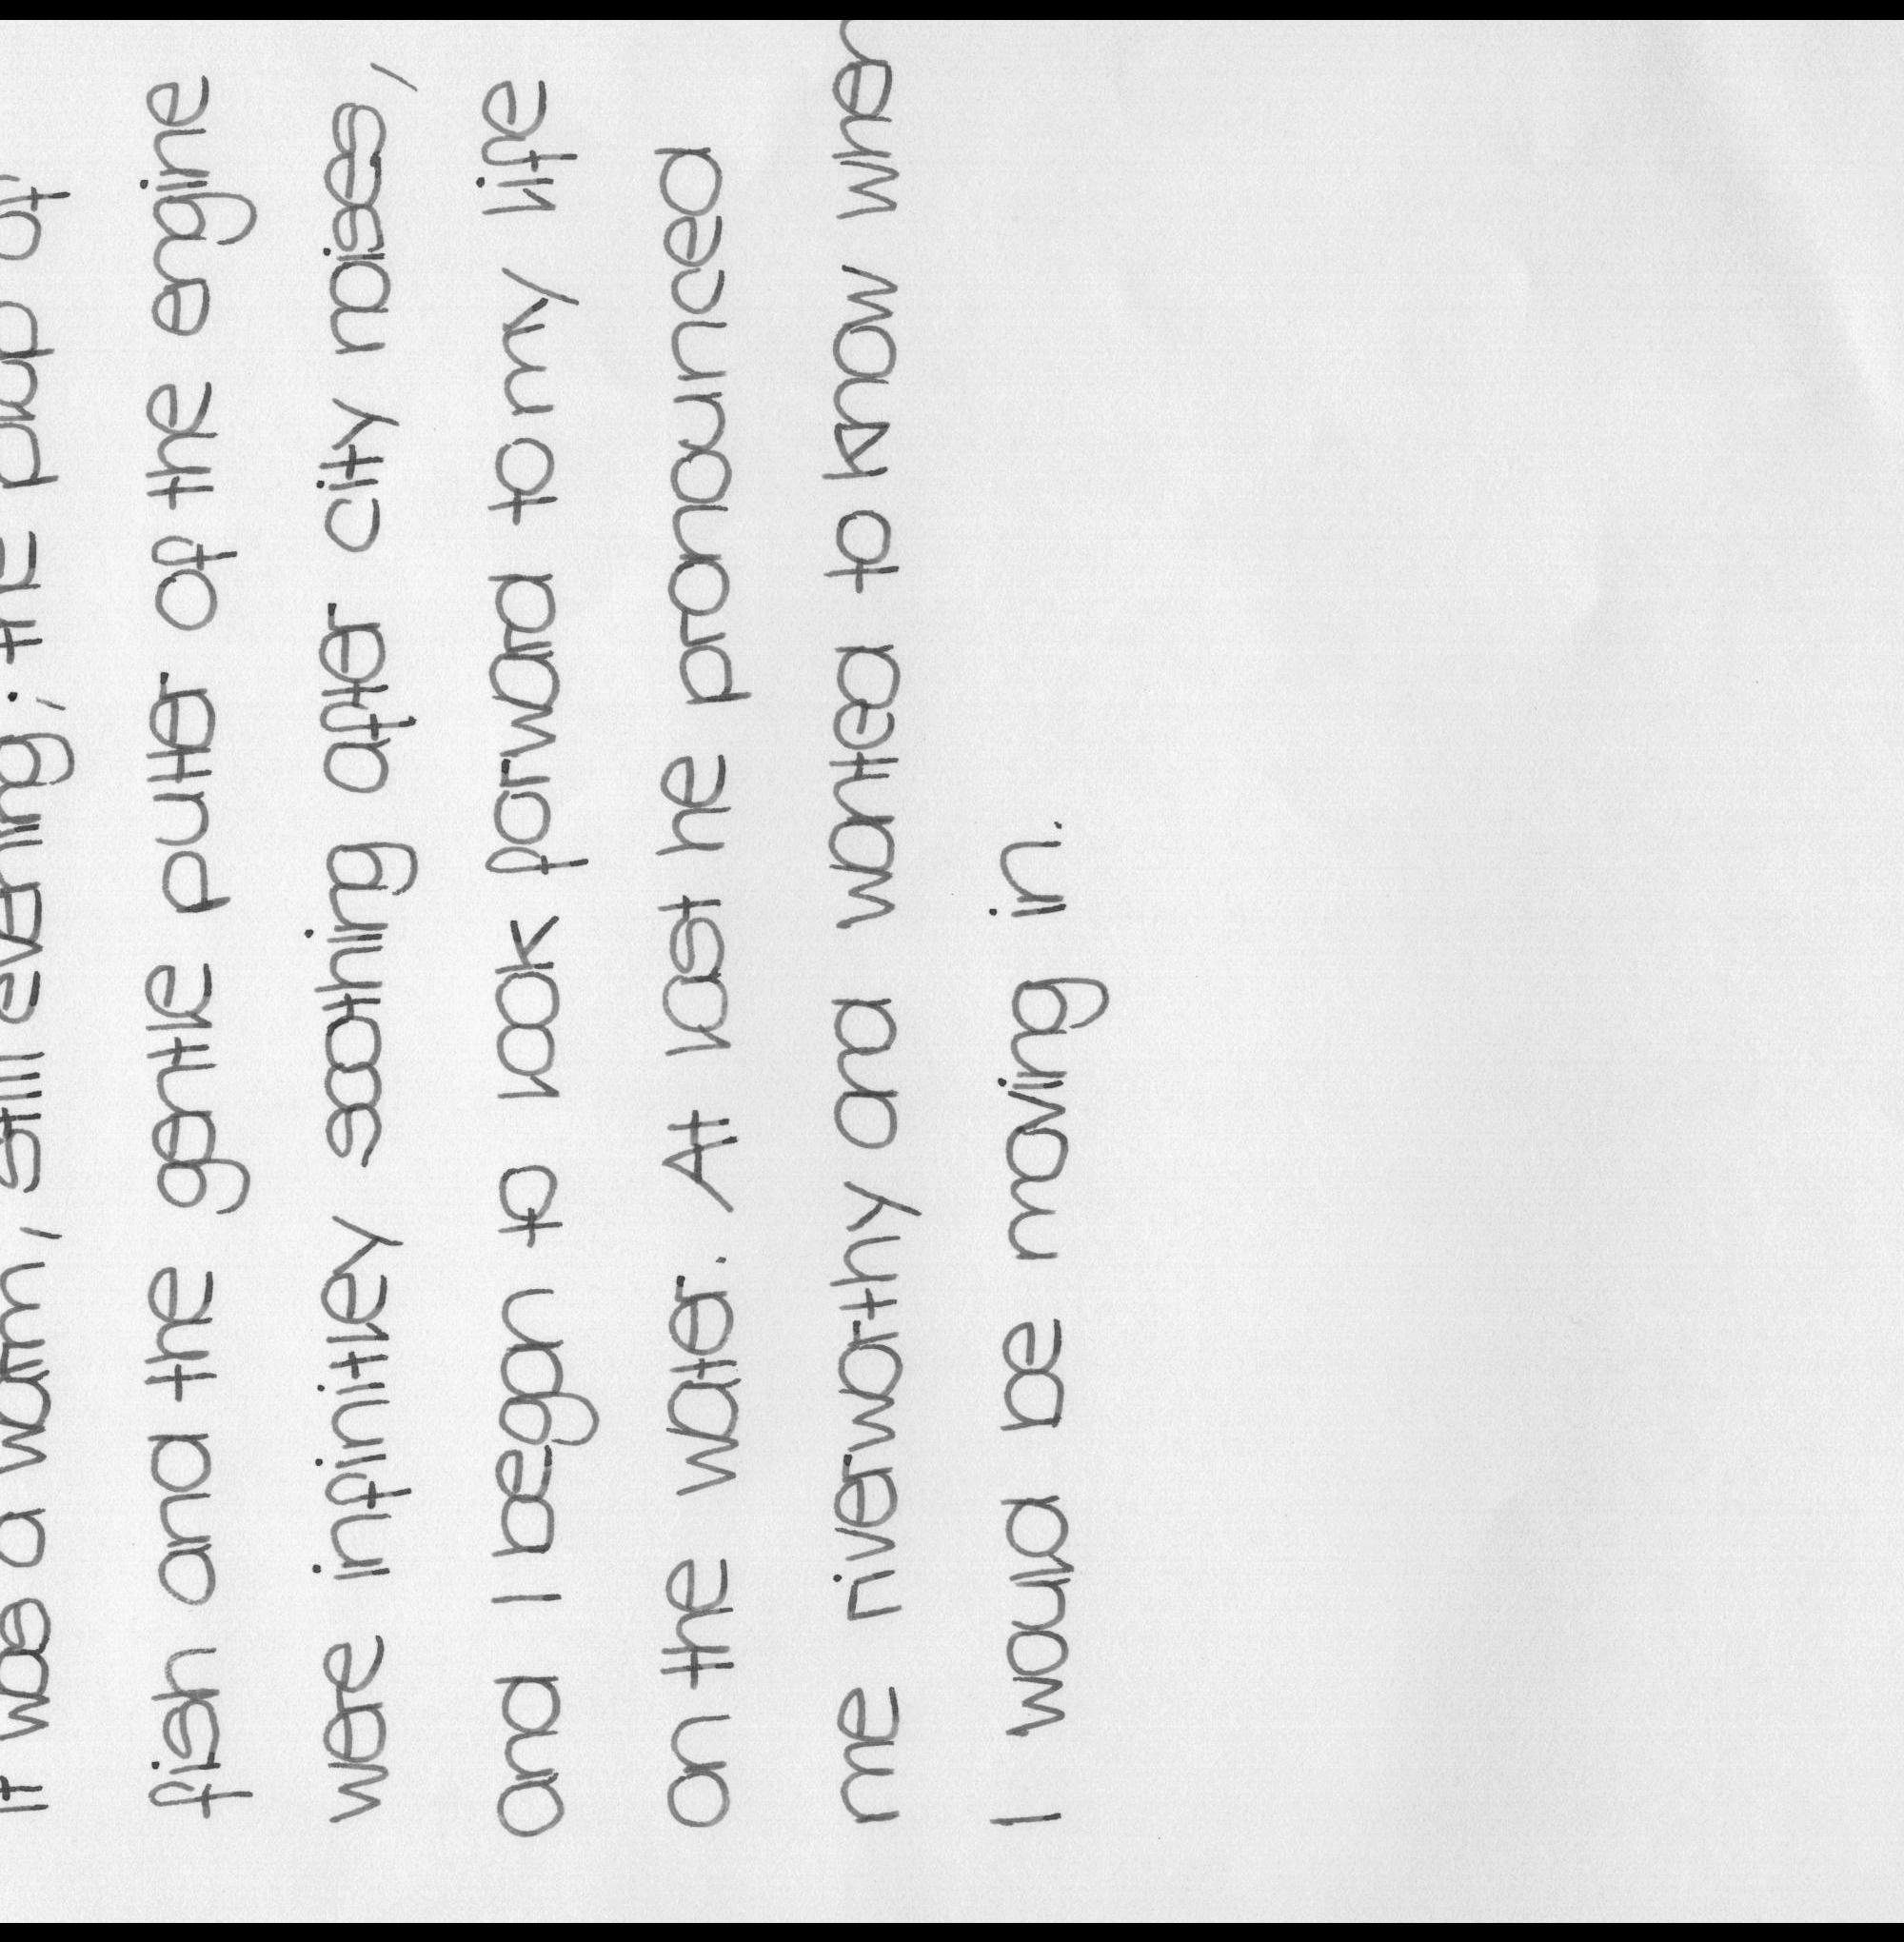 It was a warm, still evening; the plup of
fish and the gentle putter of the engine
were infinitley soothing after city noises,
and I began to look forward to my life
on the water. At last he pronounced
me riverworthy and wanted to know when
I would be moving in.